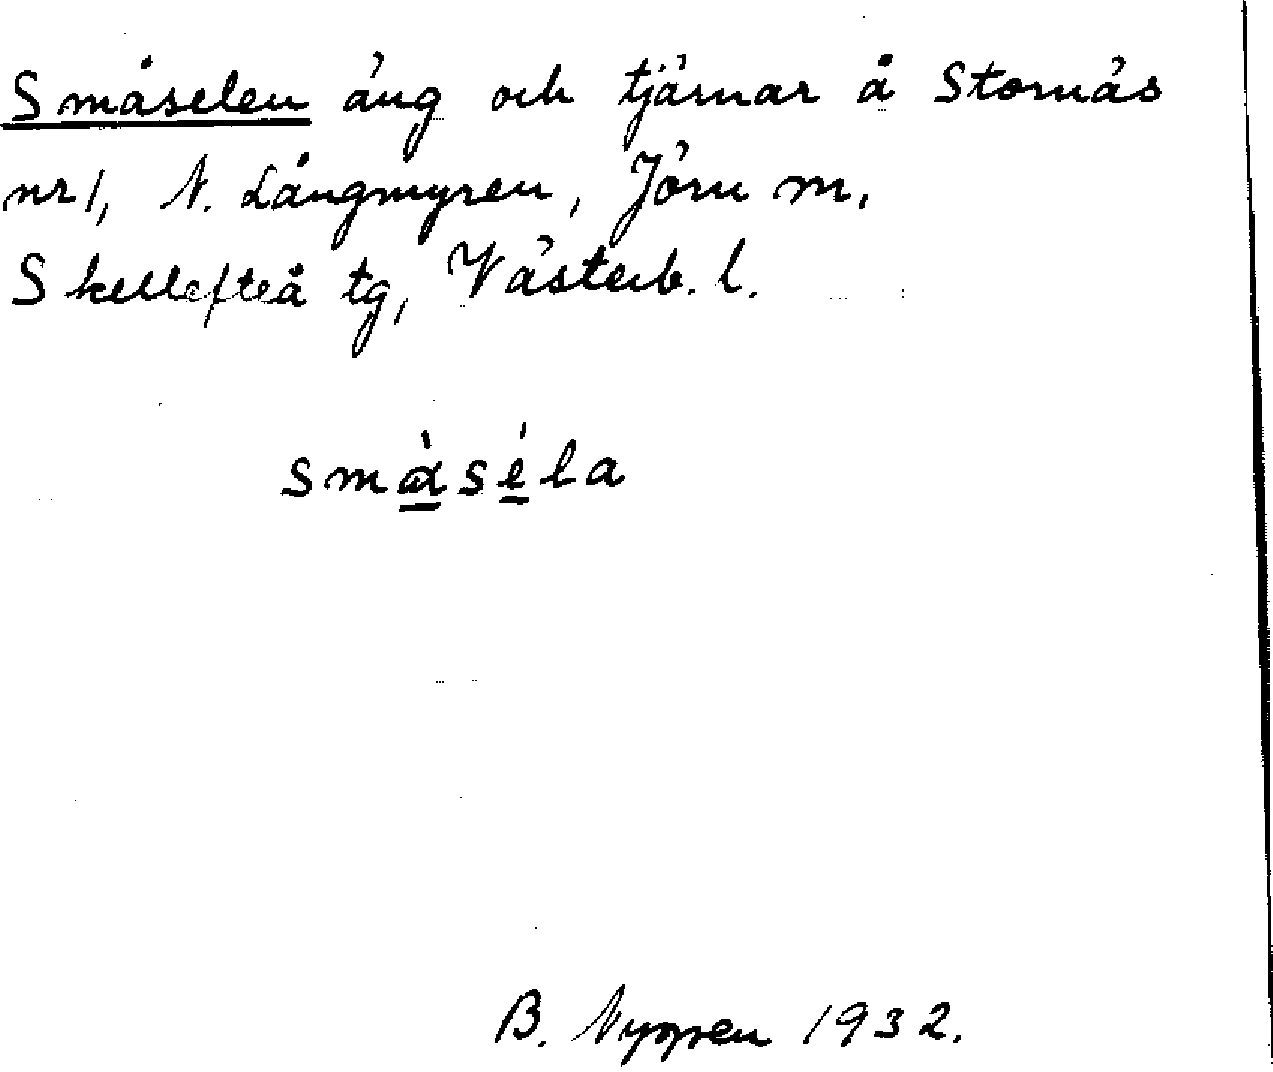 Småselen äng och tjärnar å Stornäs
nr 1, N. Långmyren, Jörn m.
Skellefteå tg, Västerb. l.
smàséla
B. Nygren 1932.